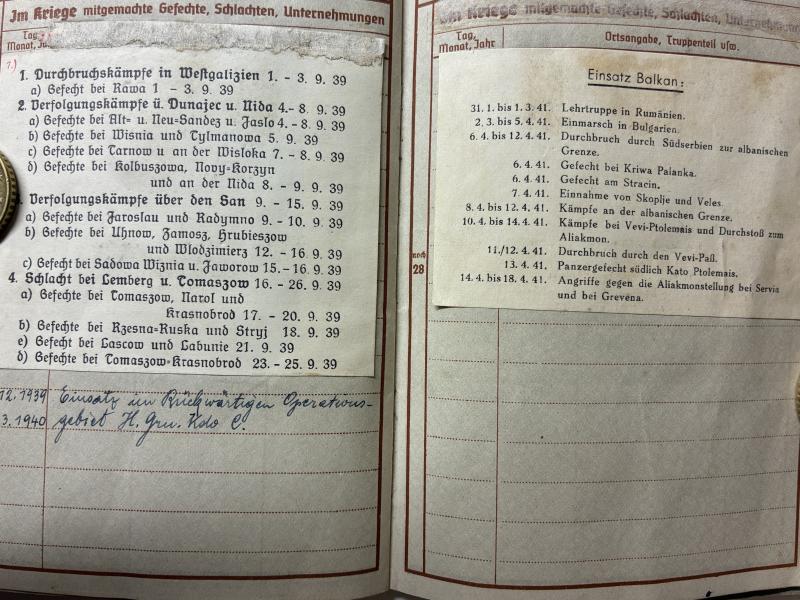 Im Kriege mitgemachte Gefechte, Schlachten, Unternehmungen
Tag,
Monat, Ja
1.)
1. Durchbruchskämpfe in Westgalizien 1. - 3. 9. 39
a) Gefecht bei Rawa 1 - 3. 9. 39
2. Verfolgungskämpfe ü. Dunajec u. Nida 4.- 8. 9. 39
a) Gefechte bei Alt= u. Neu=Sandez u. Jaslo 4. - 8. 9. 39
b) Gefechte bei Wisnia und Tylmanowa 5. 9. 39
c) Gefecht bei Tarnow u an der Wisloka 7. - 8. 9. 39
d) Gefechte bei Kolbuszowa, Novy=Korzyn
und an der Nida 8. - 9. 9. 39
. Verfolgungskämpfe über den San 9. - 15. 9. 39
a) Gefechte bei Jaroslau und Radymno 9. - 10. 9. 39
b) Gefechte bei Uhnow, Zamosz, Hrubieszow
und Wlodzimierz 12. - 16. 9. 39
c) Gefecht bei Sadowa Wiznia u. Jaworow 15. - 16. 9. 39
4. Schlacht bei Lemberg u. Tomaszow 16. - 26. 9. 39
a) Gefechte bei Tomaszow, Narol und
Krasnobrod 17. - 20. 9. 39
b) Gefechte bei Rzesna=Ruska und Stryj 18. 9. 39
e) Gefecht bei Lascow und Labunie 21. 9. 39
d) Gefechte bei Tomaszow=Krasnobrod 23. - 25. 9. 39
12. 1939 Einsatz im Rückwärtigen Operations-
3. 1940 gebiet H. Gru. Kdo C.
Im Kriege mitgemachte Gefechte, Schlachten, Unternehmungen
Tag,
Monat, Jahr
Ortsangabe, Truppenteil usw.
Einsatz Balkan:
31. 1. bis 1. 3. 41. Lehrtruppe in Rumänien.
2. 3. bis 5. 4. 41. Einmarsch in Bulgarien.
6. 4. bis 12. 4. 41. Durchbruch durch Südserbien zur albanischen
Grenze.
6. 4. 41. Gefecht bei Kriwa Palanka.
6. 4. 41. Gefecht am Stracin.
7. 4. 41. Einnahme von Skoplje und Veles.
8. 4. bis 12. 4. 41. Kämpfe an der albanischen Grenze.
10. 4. bis 14. 4. 41. Kämpfe bei Vevi-Ptolemais und Durchstoß zum
Aliakmon.
11./12. 4. 41. Durchbruch durch den Vevi-Paß.
13. 4. 41. Panzergefecht südlich Kato Ptolemais.
14. 4. bis 18. 4. 41. Angriffe gegen die Aliakmonstellung bei Servia
und bei Grevena.
noch
28